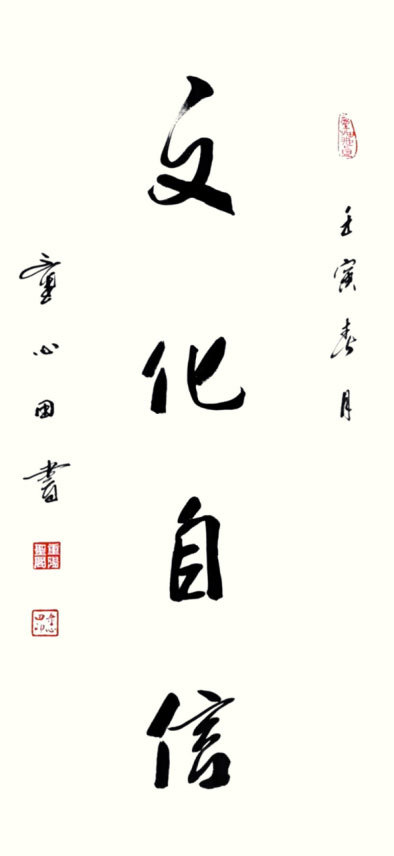 壬寅春月
文化自信
童心田書